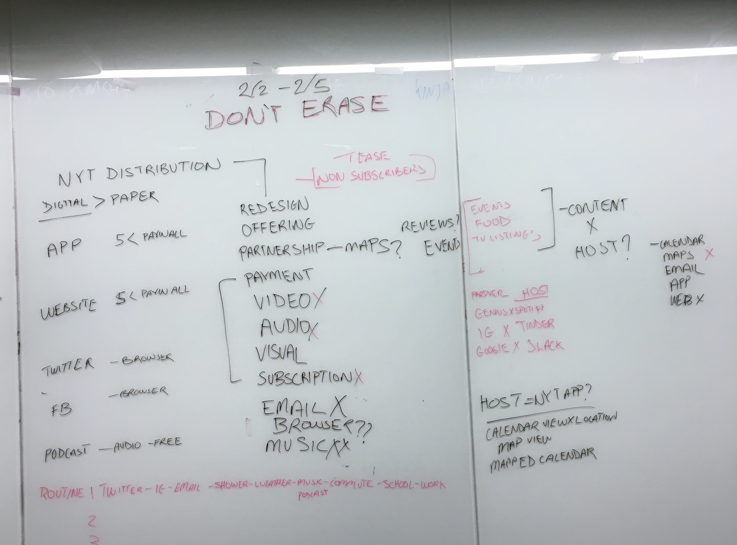 2/2 - 2/5
DON'T ERASE
NYT DISTRIBUTION
DIGITAL > PAPER
APP 5 < PAYWALL
WEBSITE 5 < PAYWALL
TWITTER - BROWSER
FB - BROWSER
PODCAST - AUDIO - FREE
TEASE
NON SUBSCRIBERS
REDESIGN
OFFERING
PARTNERSHIP - MAPS?
REVIEWS?
EVENT
PAYMENT
VIDEO X
AUDIO X
VISUAL
SUBSCRIPTION X
EMAIL X
BROWSER??
MUSIC XX
EVENTS
FOOD
TV LISTINGS
- CONTENT
X
HOST?
- CALENDAR
MAPS X
EMAIL
APP
WEB X
PARTNER HOST
GENIUS X SPOTIFY
IG X TINDER
GOOGLE X SLACK
HOST = NYT APP?
CALENDAR VIEW X LOCATION
MAP VIEW
MAPPED CALENDAR
ROUTINE 1 TWITTER - IG - EMAIL - SHOWER - WEATHER - MUSIC - COMMUTE - SCHOOL - WORK
PODCAST
2
3